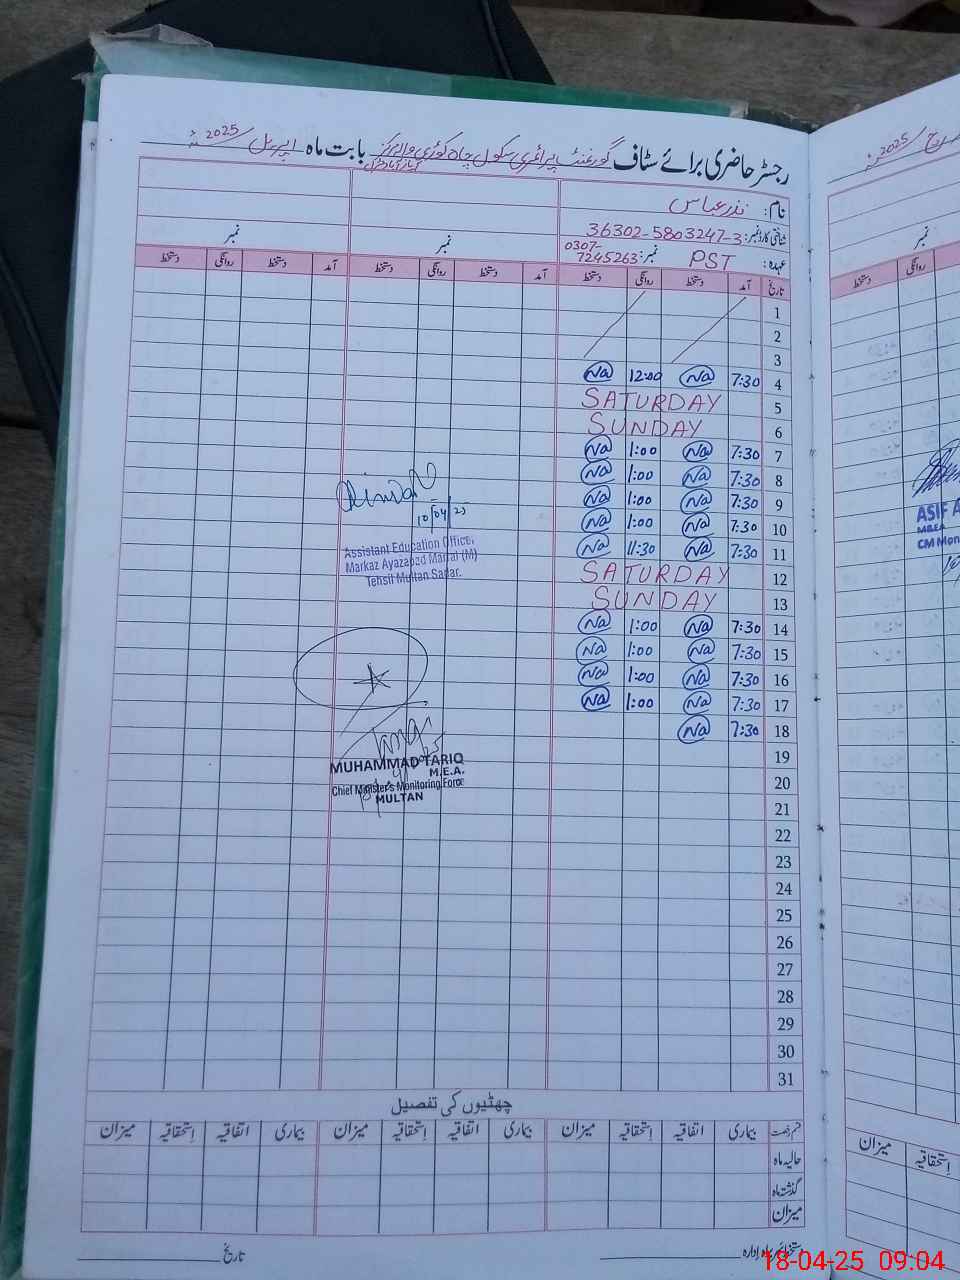 رجسٹر حاضری برائے سٹاف گورنمنٹ پرائمری سکول چاہ کوڑی والا مرکز بابت ماہ اپریل 2025ء
ایازآباد مڑل
نام: نذر عباس
شناختی کارڈ نمبر: 36302-5803247-3
عہدہ: PST نمبر: 0307-7245263
نمبر نمبر
تاریخ آمد دستخط روانگی دستخط آمد دستخط روانگی دستخط آمد دستخط روانگی دستخط
1
2
3
4 7:30 Na 12:00 Na
5 SATURDAY
6 SUNDAY
7 7:30 Na 1:00 Na
8 7:30 Na 1:00 Na
9 7:30 Na 1:00 Na
10 7:30 Na 1:00 Na
11 7:30 Na 11:30 Na
12 SATURDAY
13 SUNDAY
14 7:30 Na 1:00 Na
15 7:30 Na 1:00 Na
16 7:30 Na 1:00 Na
17 7:30 Na 1:00 Na
18 7:30 Na
19
20
21
22
23
24
25
26
27
28
29
30
31
10/04/25
Assistant Education Officer,
Markaz Ayazabad Marral (M)
Tehsil Multan Sadar.
MUHAMMAD TARIQ
M.E.A.
Chief Minister's Monitoring Force
MULTAN
چھٹیوں کی تفصیل
قسم رخصت بیماری اتفاقیہ استحقاقیہ میزان بیماری اتفاقیہ استحقاقیہ میزان بیماری اتفاقیہ استحقاقیہ میزان
حالیہ ماہ
گذشتہ ماہ
میزان
دستخط سربراہ ادارہ تاریخ
2025ء
نمبر
روانگی دستخط
ASIF A
M.E.A
CM Mon
میزان
استحقاقیہ
18-04-25 09:04